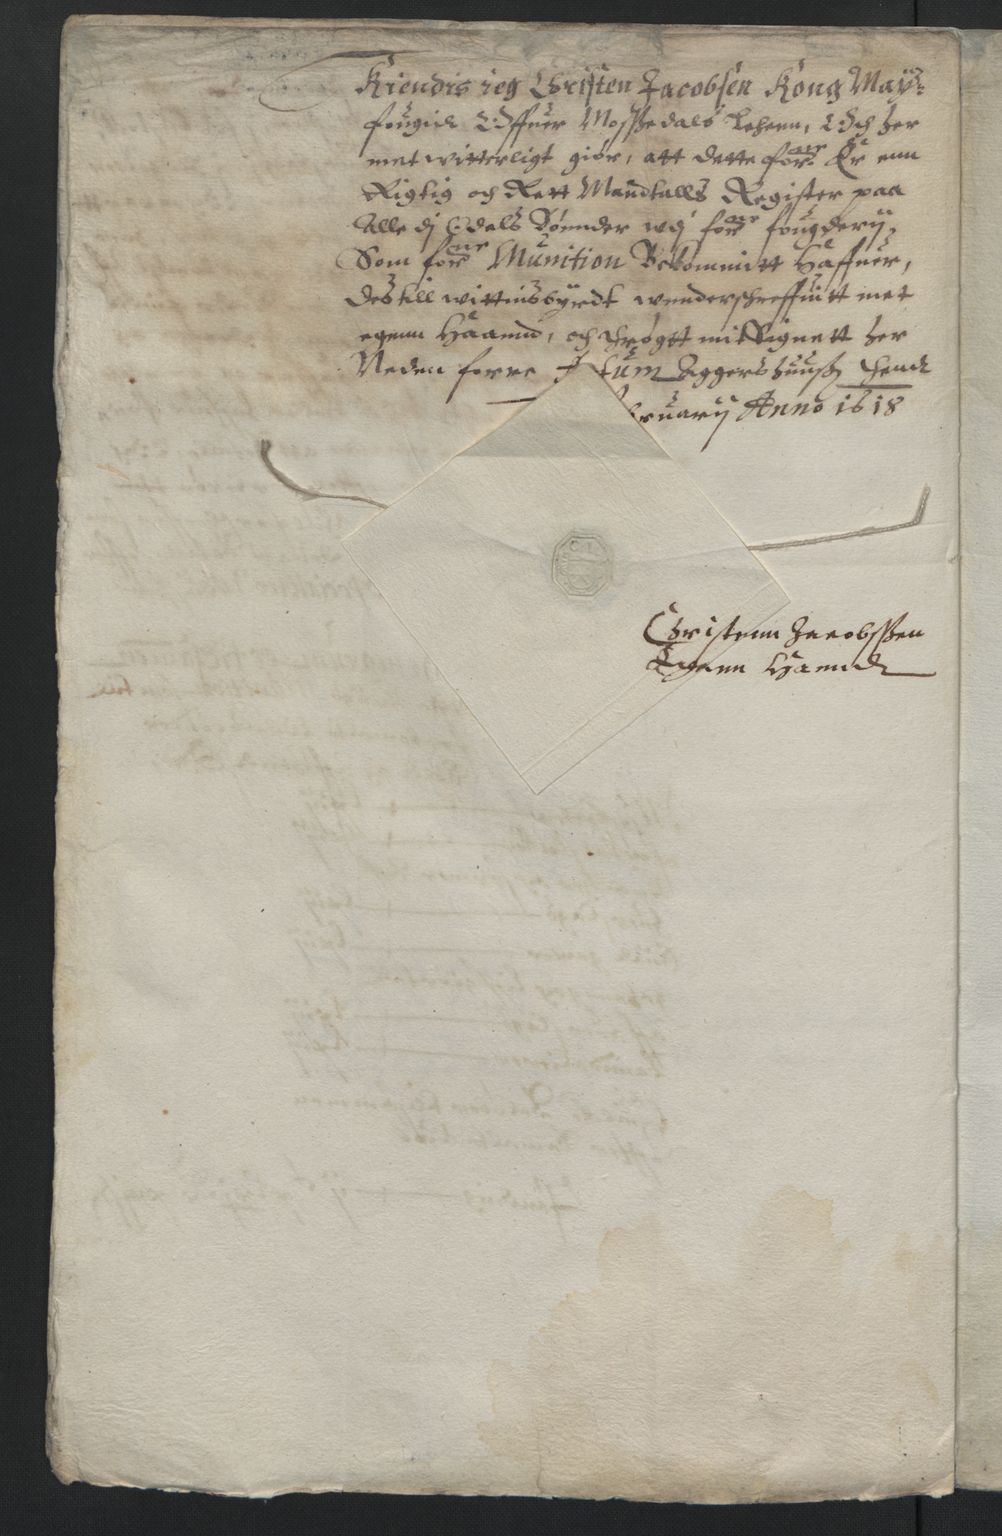 Kiendis ieg Christen Jacobsen Kong May:
fougidt Offuer Moßedals Lehenn, Och her
met witterligt giør, att dette for:ne Er enn
Rigtig och Rett Mandtalls Register paa
Alle dj Odals Bønnder wdj for:ne fougderij,
Som for:ne Munition Bekommitt Haffuer,
des till wittnisbyrdt wnderschreffuitt met
egenn Haannd, och trøgtt mit Signett her
Neden forre Actum Aggershuuß
Februarij Anno 1618
Christenn Jacobßen
Egenn Haandt